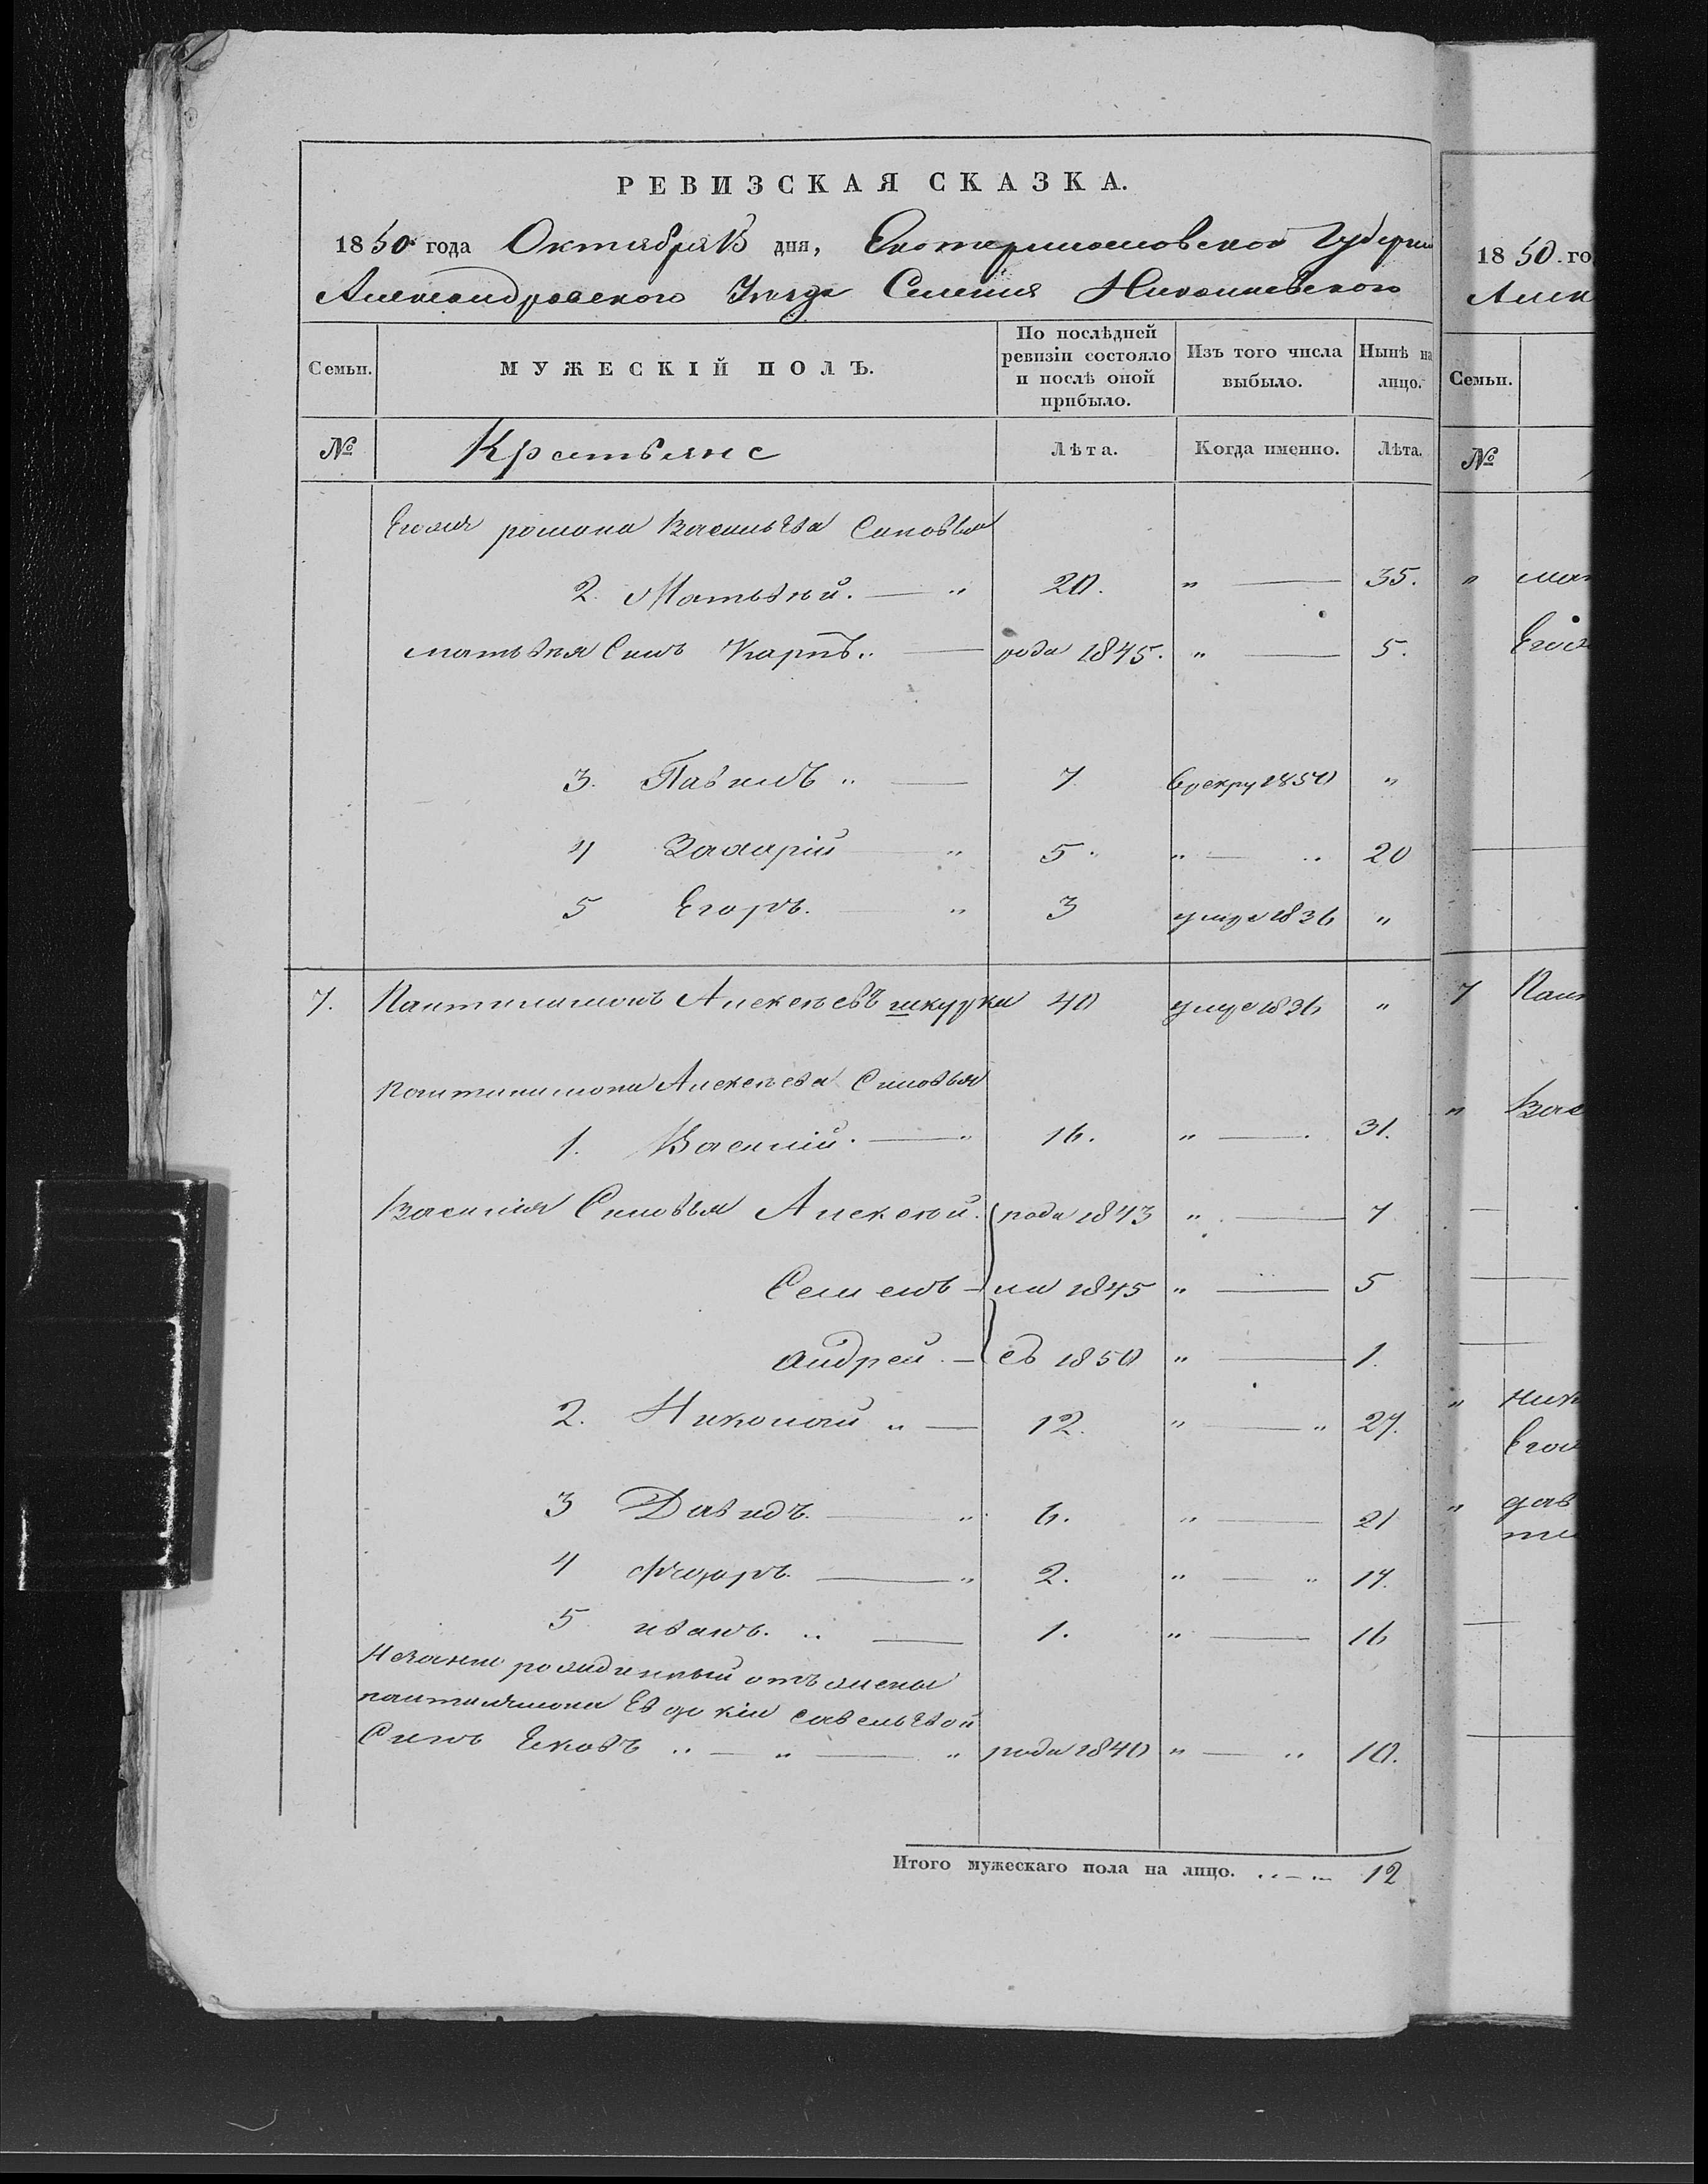 РЕВИЗСКАЯ СКАЗКА.
1850 года Октября 15 дня, Екатеринославской Губерни
Александровского Уезда Селения Николаевского
Семьи. МУЖЕСКІЙ ПОЛЪ. По послѣдней ревизіи состояло и послѣ оной прибыло. Изъ того числа выбыло. Нынѣ на лицо.
№ Крестьяне Лѣта. Когда именно. Лѣта.
романа Васильева Синовья
2. Матвѣй. — " 20. " — 35.
матвѣя Синъ Карпъ.. — рода 1845. " — 5.
3. Павилъ " — 7 врекру 1850 "
4 Захарій — " 5. " — .. 20
5 Егоръ. — " 3 умре 1836 "
7. Пантилимонъ Алексѣевъ шкурка 40 умре 1836 "
Пантилимона Алексѣева Синовья
1. Василий. — " 16. " — 31.
Василия Синовья Алексѣй. рода 1843 " — 7
Семенъ — ми 1845 " — 5
Андрей. — съ 1850 " — 1.
2. Николай " — 12. " — " 27.
3 Давидъ. — " 6. " — 21
4 Федоръ. — " 2. " — " 17.
5 иванъ. .. — 1. " — 16
рожденный отъ жены
пантилимона Евдокіи савельевой
Синъ Яковъ .. — " — " рода 1840 " — .. 10.
Итого мужескаго пола на лицо. ..—.— 12
1850. го
Алек
Семьи.
№
" мат
Его
7 Пан
" Вас
" Ник
Его
" дав